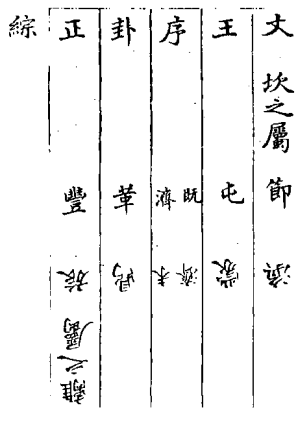 文 坎之屬 節 渙
王 屯 蒙
序 既濟 未濟
卦 革 鼎
正 豐 旅 離之屬
綜